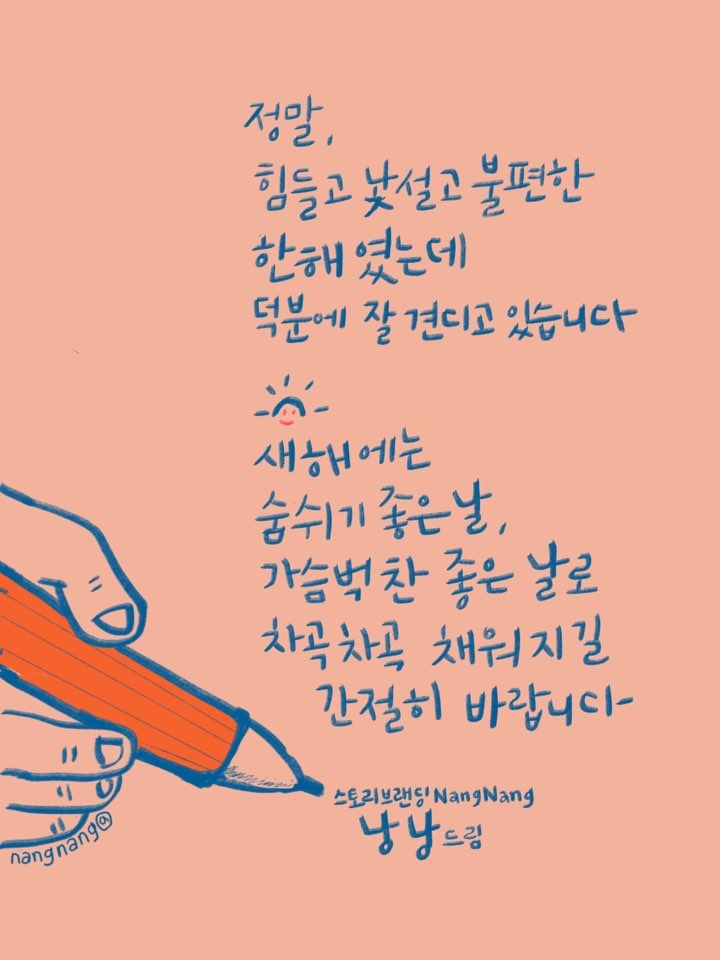 정말,
힘들고 낯설고 불편한
한해였는데
덕분에 잘 견디고 있습니다
새해에는
숨쉬기 좋은날,
가슴벅찬 좋은 날로
차곡차곡 채워지길
간절히 바랍니다
스토리브랜딩 NangNang
낭낭드림
nangnang@